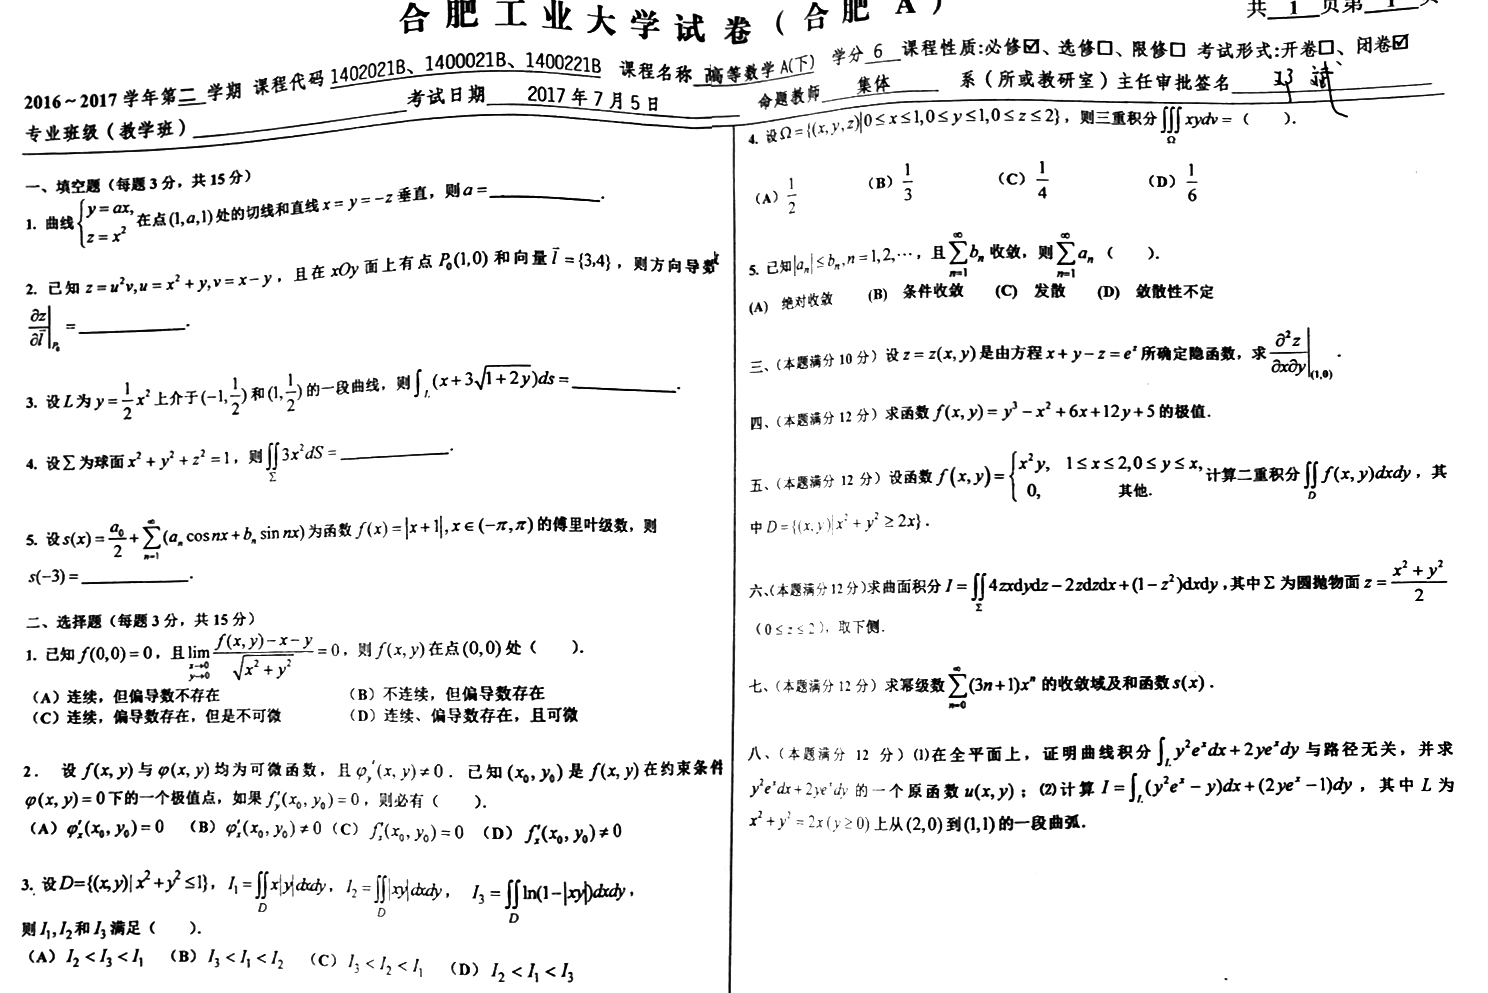 合肥工业大学试卷(合肥A)
共 1 页第 1 页
2016～2017学年第二学期 课程代码 1402021B、1400021B、1400221B 课程名称 高等数学A(下) 学分 6 课程性质:必修☑、选修☐、限修☐ 考试形式:开卷☐、闭卷☑
专业班级(教学班)________ 考试日期 2017年7月5日 命题教师 集体 系(所或教研室)主任审批签名
一、填空题(每题3分,共15分)
1. 曲线{y=ax, z=x² 在点(1,a,1)处的切线和直线x=y=-z垂直,则a=________.
2. 已知z=u²v,u=x²+y,v=x-y,且在xOy面上有点P₀(1,0)和向量l⃗={3,4},则方向导数
∂z/∂l⃗|P₀ =________.
3. 设L为y=1/2x²上介于(-1,1/2)和(1,1/2)的一段曲线,则∫_L(x+3√(1+2y))ds=________.
4. 设Σ为球面x²+y²+z²=1,则∬_Σ3x²dS=________.
5. 设s(x)=a₀/2+∑_{n=1}^∞(aₙcosnx+bₙsin nx)为函数f(x)=|x+1|,x∈(-π,π)的傅里叶级数,则
s(-3)=________.
二、选择题(每题3分,共15分)
1. 已知f(0,0)=0,且lim_{x→0,y→0} (f(x,y)-x-y)/√(x²+y²)=0,则f(x,y)在点(0,0)处( ).
(A)连续,但偏导数不存在 (B)不连续,但偏导数存在
(C)连续,偏导数存在,但是不可微 (D)连续、偏导数存在,且可微
2. 设f(x,y)与φ(x,y)均为可微函数,且φ_y'(x,y)≠0.已知(x₀,y₀)是f(x,y)在约束条件
φ(x,y)=0下的一个极值点,如果f_y'(x₀,y₀)=0,则必有( ).
(A)φ_x'(x₀,y₀)=0 (B)φ_x'(x₀,y₀)≠0 (C)f_x'(x₀,y₀)=0 (D)f_x'(x₀,y₀)≠0
3. 设D={(x,y)|x²+y²≤1},I₁=∬_D x|y|dxdy,I₂=∬_D|xy|dxdy, I₃=∬_D ln(1-|xy|)dxdy,
则I₁,I₂和I₃满足( ).
(A)I₂<I₃<I₁ (B)I₃<I₁<I₂ (C)I₃<I₂<I₁ (D)I₂<I₁<I₃
4. 设Ω={(x,y,z)|0≤x≤1,0≤y≤1,0≤z≤2},则三重积分∭_Ω xydv=( ).
(A)1/2 (B)1/3 (C)1/4 (D)1/6
5. 已知|aₙ|≤bₙ,n=1,2,⋯,且∑_{n=1}^∞bₙ收敛,则∑_{n=1}^∞aₙ( ).
(A) 绝对收敛 (B) 条件收敛 (C) 发散 (D) 敛散性不定
三、(本题满分10分)设z=z(x,y)是由方程x+y-z=e^z所确定隐函数,求∂²z/∂x∂y|(1,0).
四、(本题满分12分)求函数f(x,y)=y³-x²+6x+12y+5的极值.
五、(本题满分12分)设函数f(x,y)={x²y, 1≤x≤2,0≤y≤x, 0, 其他. 计算二重积分∬_D f(x,y)dxdy,其
中D={(x,y)|x²+y²≥2x}.
六、(本题满分12分)求曲面积分I=∬_Σ4zxdydz-2zdzdx+(1-z²)dxdy,其中Σ为圆抛物面z=(x²+y²)/2
(0≤z≤2),取下侧.
七、(本题满分12分)求幂级数∑_{n=0}^∞(3n+1)xⁿ的收敛域及和函数s(x).
八、(本题满分12分)(1)在全平面上,证明曲线积分∫_L y²e^xdx+2ye^xdy与路径无关,并求
y²e^xdx+2ye^xdy的一个原函数u(x,y);(2)计算I=∫_L(y²e^x-y)dx+(2ye^x-1)dy,其中L为
x²+y²=2x(y≥0)上从(2,0)到(1,1)的一段曲弧.